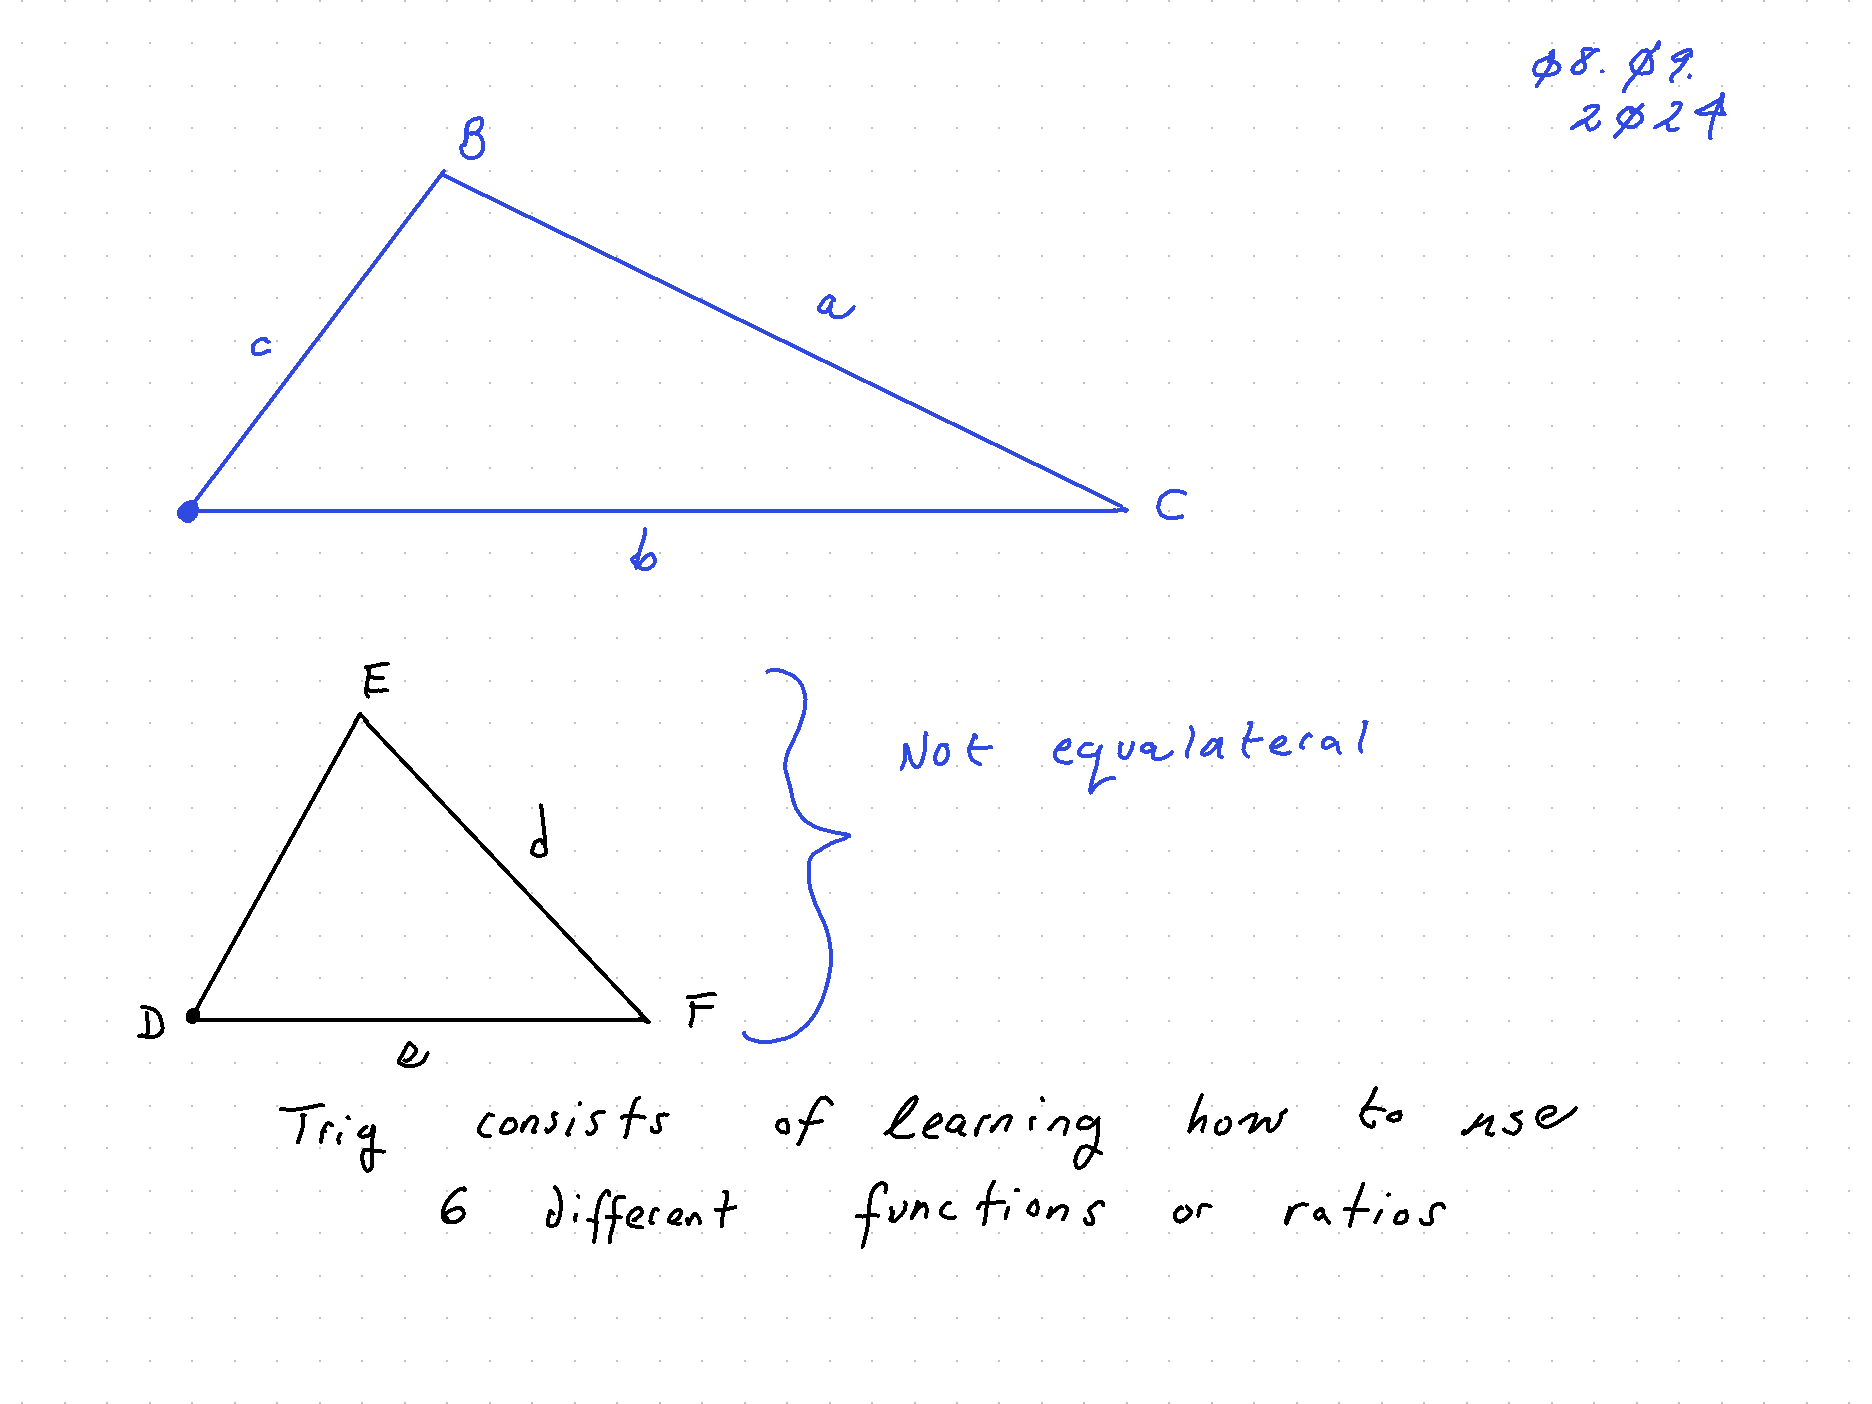 ø8. ø9.
2ø24
B
a
c
C
b
E
Not equalateral
d
D
F
e
Trig consists of learning how to use
6 different functions or ratios